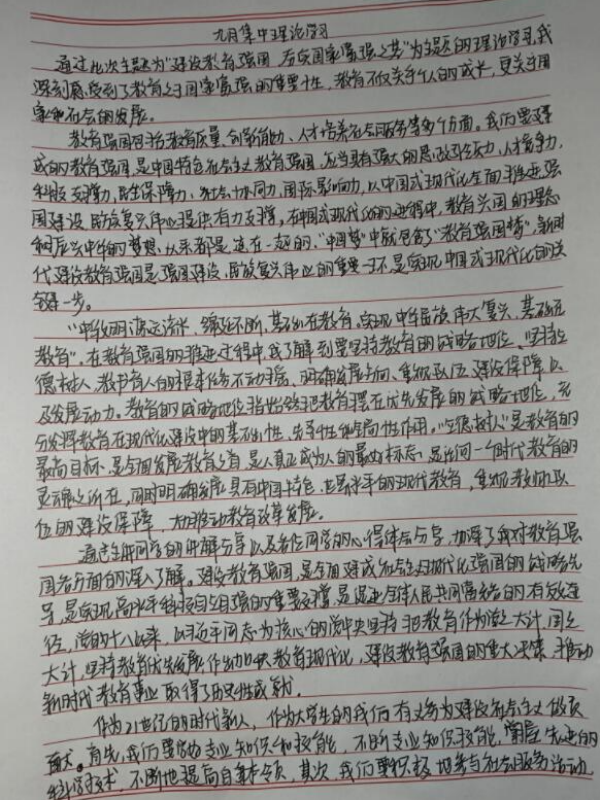 九月集中理论学习
通过此次主题为"建设教育强国 后续国家富强之基"为主题的理论学习,我
深刻感受到了教育之于国家富强的重要性,教育不仅关乎个人的成长,更关乎国
家和社会的发展。
教育强国包括教育质量、创新能力、人才培养社会服务等多个方面。我们要建
成的教育强国,是中国特色社会主义教育强国,应当具有强大的思政引领力、人才竞争力、
科技支撑力、民生保障力、社会协同力、国际影响力,以中国式现代化全面推进强
国建设、民族复兴伟业提供有力支撑。在中国式现代化的进程中,教育兴国的理念
和振兴中华的梦想,从来都是连在一起的,"中国梦"中就包含了"教育强国梦",新时
代建设教育强国是强国建设、民族复兴伟业的重要一环,是实现中国式现代化的关
键一步。
"中华文明源远流长、绵延不断,基础在教育。实现中华民族伟大复兴,基础在
教育"。在教育强国的推进过程中,我了解到要坚持教育的战略地位、坚持立
德树人、教书育人的根本任务不动摇、明确发展方向、重视队伍建设保障以
及发展动力。教育的战略地位指始终把教育摆在优先发展的战略地位,充
分发挥教育在现代化建设中的基础性、先导性和全局性作用,"立德树人"是教育的
最高目标,是全面发展教育之首,是人真正成为人的最好标志,是任何一个时代教育的
灵魂之所在,同时明确发展具有中国特色、世界水平的现代教育,重视教师队
伍的建设保障,大力推动教育改革发展。
通过主讲同学的讲解分享以及各位同学的心得体会分享,加深了我对教育强
国各方面的深入了解。建设教育强国,是全面建成社会主义现代化强国的战略先
导,是实现高水平科技自立自强的重要支撑,是促进全体人民共同富裕的有效途
径,党的十八大以来,以习近平同志为核心的党中央坚持把教育作为国之大计、党之
大计,坚持教育优先发展,作出加快教育现代化、建设教育强国的重大决策,推动
新时代教育事业取得了历史性成就。
作为21世纪的时代新人,作为大学生的我们有义务为建设社会主义做贡
献。首先,我们要专业知识和技能,不断专业知识技能,掌握先进的
科学技术,不断地提高自身本领,其次,我们要积极地参与社会服务活动,